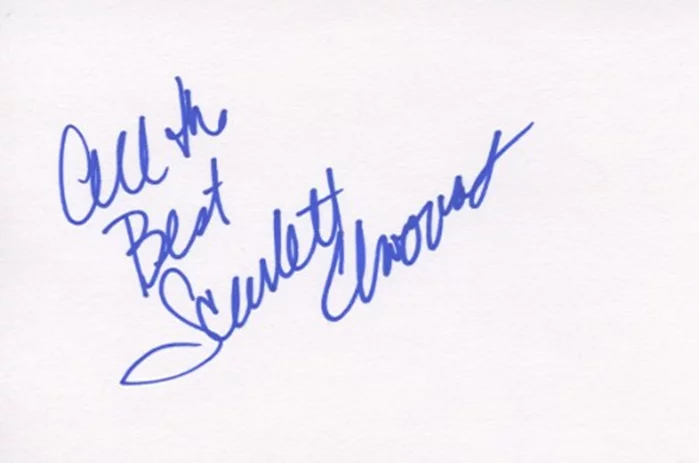 All the
Best
Scarlett